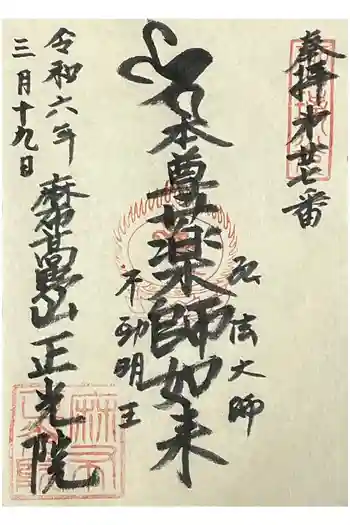 奉拝 第廿七番
本尊薬師如来
弘法大師
不動明王
麻布高野山 正光院
令和六年
三月十九日